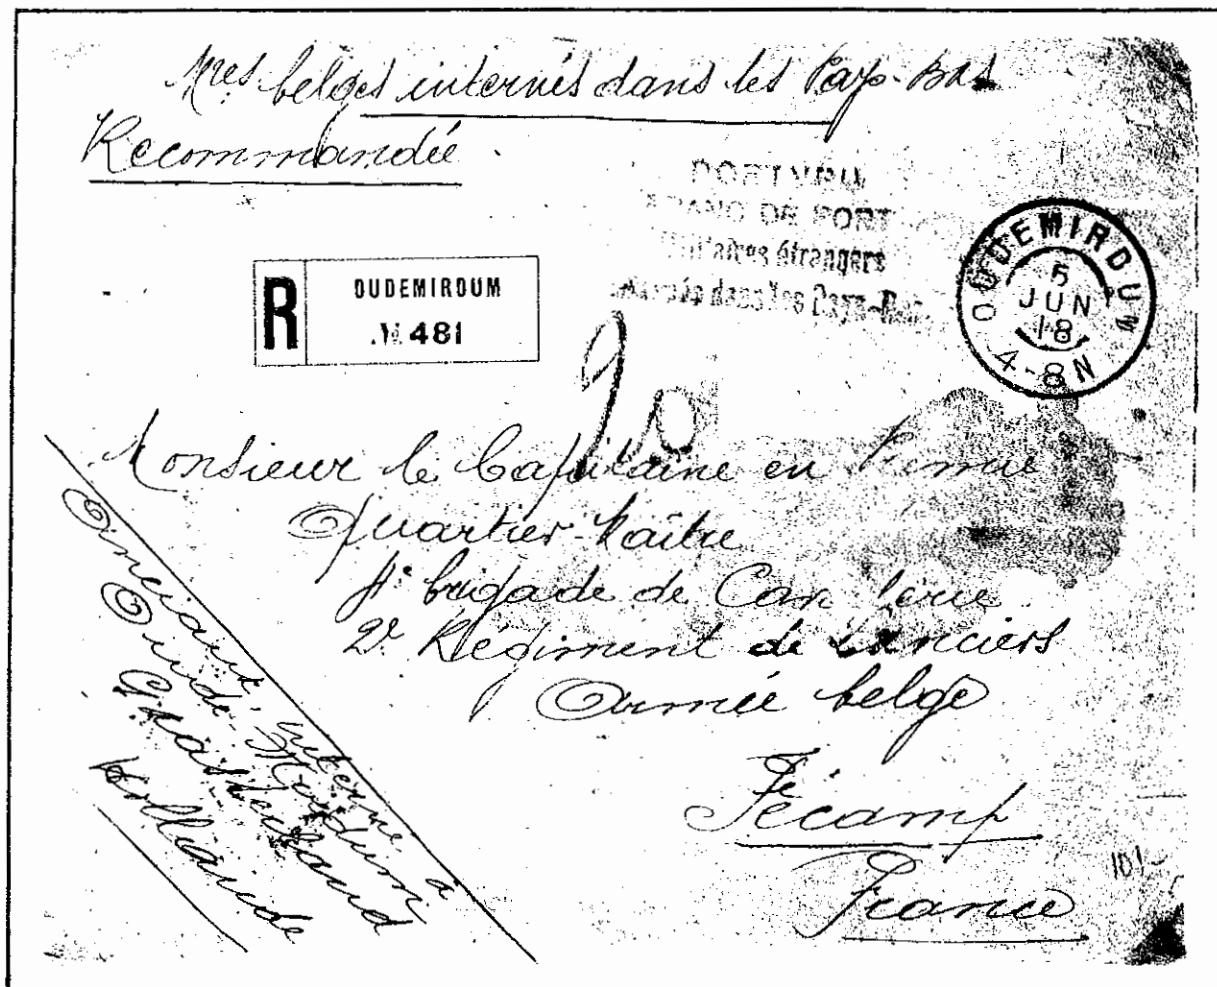 Mres belges internés dans les Pays-Bas
Recommandée
PORTVRIJ
FRANC DE PORT
Militaires étrangers
internés dans les Pays-Bas
OUDEMIRDUM
5
JUN
18
4-8N
R
OUDEMIRDUM
N 481
90
Monsieur le Capitaine en
Quartier-Maître
1e brigade de Cavalerie
2e Régiment de Lanciers
Armée belge
Fécamp
France
interné à
Oude-Mirdum
Gaasterland
Hollande